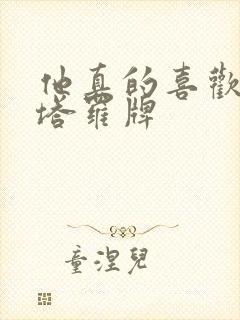 他真的喜歡
塔羅牌
童涅兒